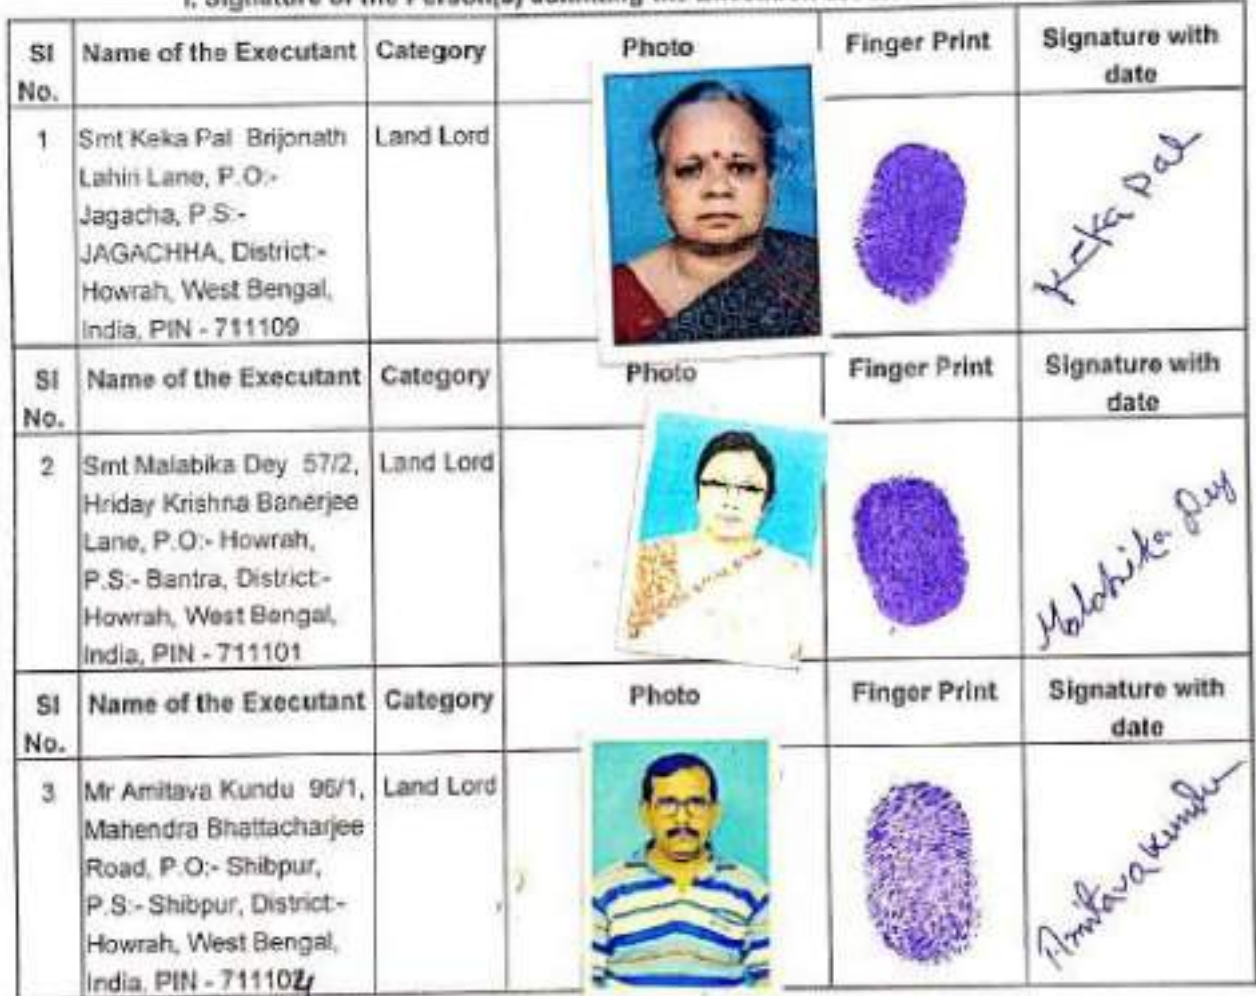 I. Signature of the Person(s) admitting the Execution
Sl No. Name of the Executant Category Photo Finger Print Signature with date
1 Smt Keka Pal Brijonath Land Lord
Lahiri Lane, P.O:-
Jagacha, P.S:-
JAGACHHA, District:-
Howrah, West Bengal,
India, PIN - 711109
Keka Pal
Sl No. Name of the Executant Category Photo Finger Print Signature with date
2 Smt Malabika Dey 57/2, Land Lord
Hriday Krishna Banerjee
Lane, P.O:- Howrah,
P.S:- Bantra, District:-
Howrah, West Bengal,
India, PIN - 711101
Malabika Dey
Sl No. Name of the Executant Category Photo Finger Print Signature with date
3 Mr Amitava Kundu 96/1, Land Lord
Mahendra Bhattacharjee
Road, P.O:- Shibpur,
P.S:- Shibpur, District:-
Howrah, West Bengal,
India, PIN - 711104
Amitava Kundu